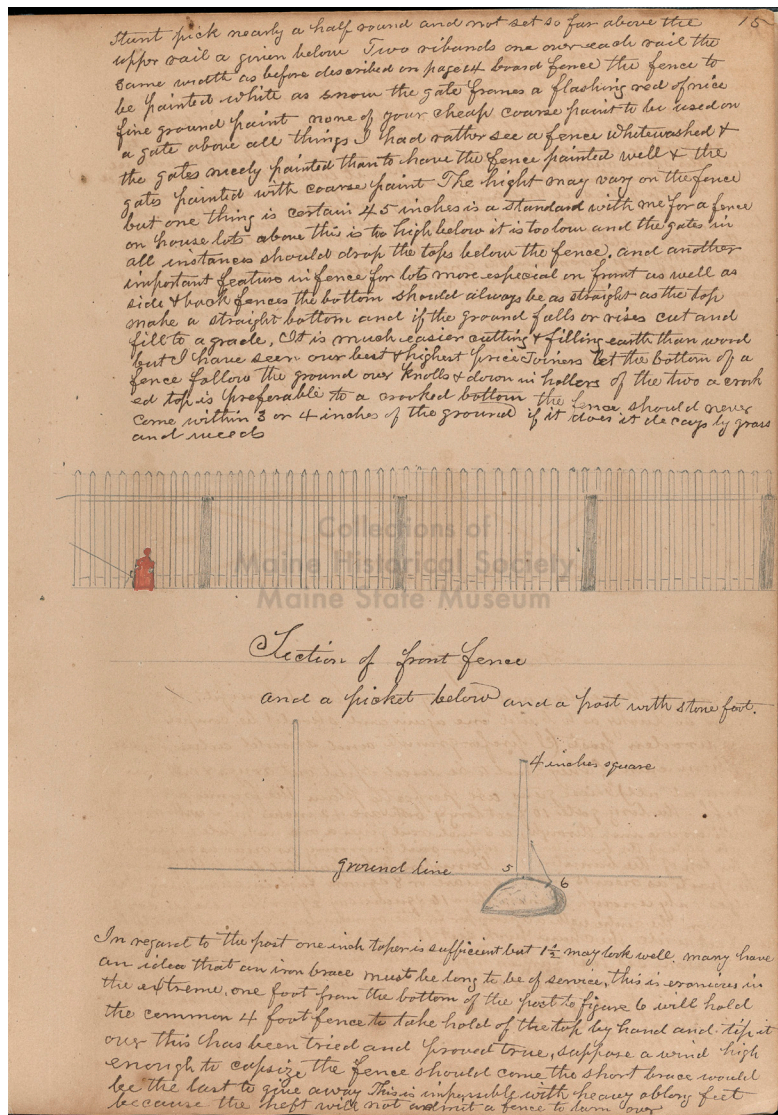 15
stunt pick nearly a half round and not set so far above the
upper rail a given below Two ribands one over each rail the
same width as before described on page 14 board fence the fence to
be painted white as snow the gate frames a flashing red of nice
fine ground paint none of your cheap coarse paint to be used on
a gate above all things I had rather see a fence whitewashed &
the gates nicely painted than to have the fence painted well & the
gates painted with coarse paint The hight may vary on the fence
but one thing is certain 45 inches is a standard with me for a fence
on house lots above this is to high below it is too low and the gates in
all instances should drop the tops below the fence, and another
important feature in fence for lots more especial on front as well as
side & back fences the bottom should always be as straight as the top
make a straight bottom and if the ground falls or rises cut and
fill to a grade, It is much easier cutting & filling earth than word
but I have seen our best & highest price Joiners let the bottom of a
fence follow the ground over Knolls & down in hollers of the two a crook
ed top is preferable to a crooked bottom the fence should never
come within 3 or 4 inches of the ground if it does it decays by grass
and weeds
Collections of
Maine Historical Society
Maine State Museum
Section of front fence
and a picket below and a post with stone foot.
4 inches square
ground line
5
6
In regard to the post one inch taper is sufficient but 1½ may look well, many have
an idea that an iron brace must be long to be of service, this is eronious in
the extreme, one foot from the bottom of the post to figure 6 will hold
the common 4 foot fence to take hold of the top by hand and tip it
over this has been tried and proved true, suppose a wind high
enough to capsize the fence should come the short brace would
be the last to give away This is impossible with heavy oblong feet
because the heft will not admit a fence to turn over